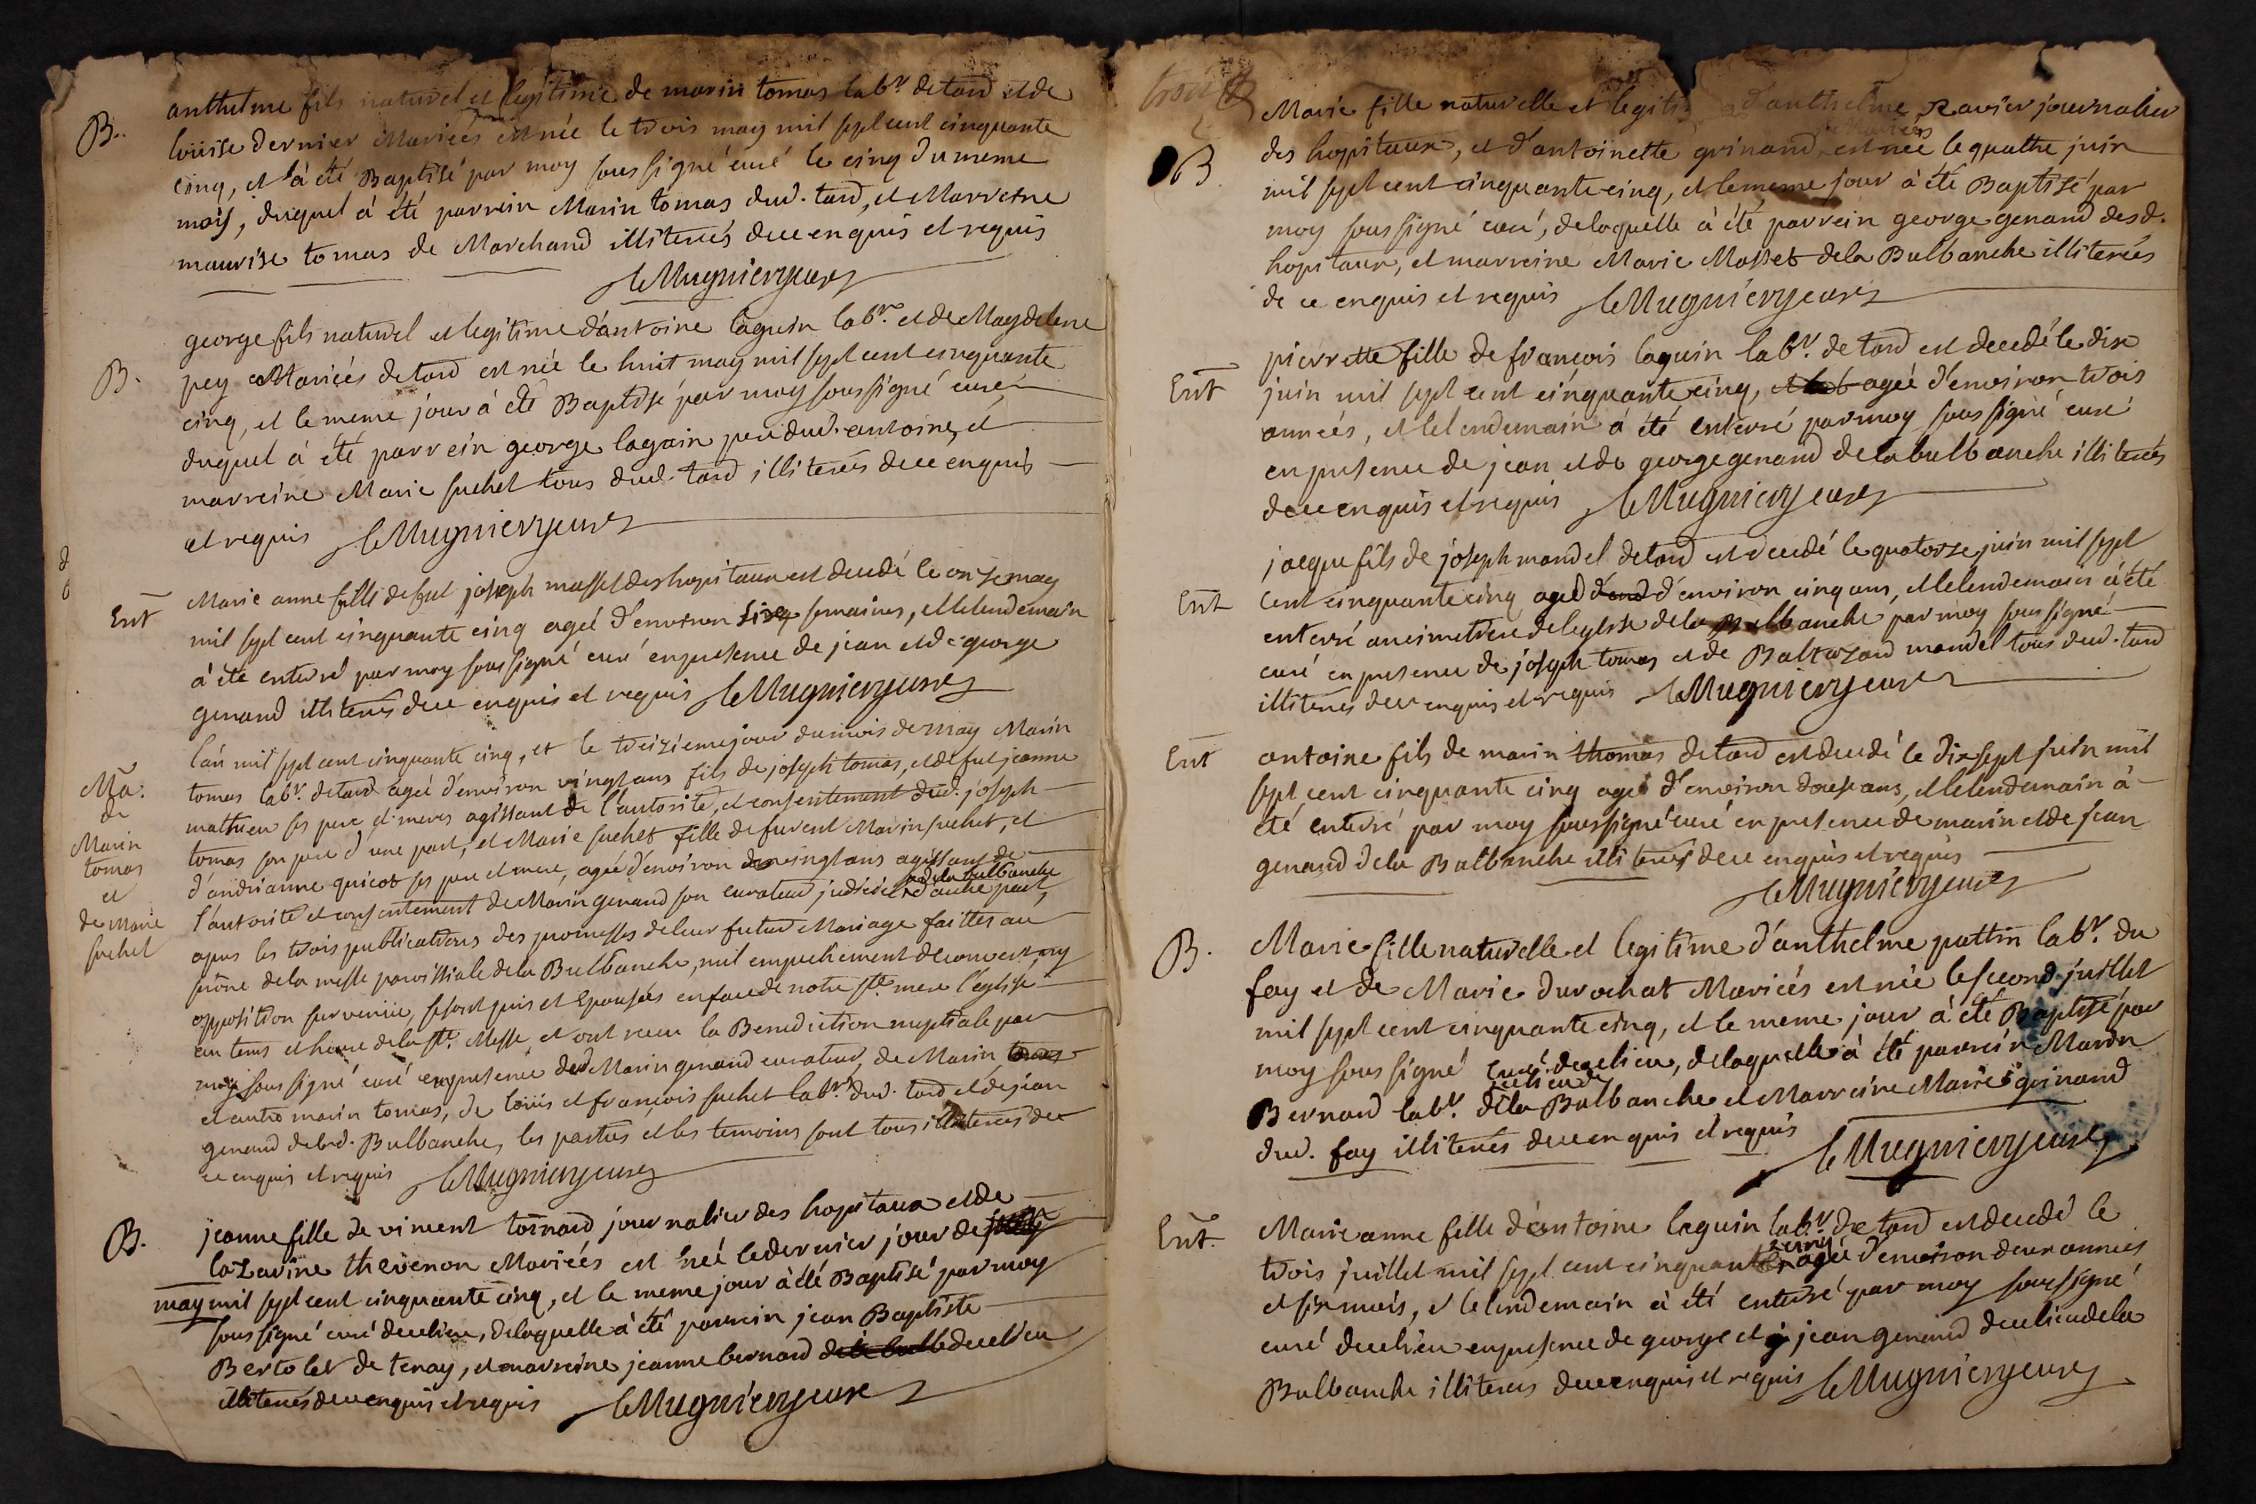 B.. anthelme fils naturel et legitime de marin tomas lab.r de tard et de
louise dernier Mariées est née le trois may mil sept cent cinquante
cinq, et à été Baptisé par moy soussigné curé le cinq du meme
mois, duquel à été parrein Marin tomas dud. tard, et Marreine
maurise tomas de Marchand illiterés de ce enquis et requis
leMugnieryCuré
B. george fils naturel et legitime d'antoine laguin lab.r et de Magdelene
pey Mariées de tard est née le huit may mil sept cent cinquante
cinq, et le meme jour à été Baptisé par moy soussigné curé
duquel à été parrein george laguin pere dud. antoine, et
marreine Marie suchet tous dud. tard illiterés de ce enquis
et requis leMugnieryCuré
Ent Marie anne fille de fut joseph masset des hopitaux est decedé le onze may
mil sept cent cinquante cinq ageé d'environ six semaines, et le lendemain
à été enterré par moy soussigné curé en presence de jean et de george
genand illiterés de ce enquis et requis leMugnieryCuré
Ma:
de
Marin
tomas
et
de Marie
suchet
l'an mil sept cent cinquante cinq, et le treizieme jour du mois de may Marin
tomas lab.r de tard ageé d'environ vingt ans fils de joseph tomas, et de fut jeanne
mathieu ses pere et meres agissant de l'autorité, et consentement dud. joseph
tomas son pere d'une part, et Marie suchet fille de furent Marin suchet, et
d'andrianne quicot ses pere et mere, ageé d'environ vingt ans agissant de
l'autorité et consentement de Marin genand son curateur judiciel de la bulbanche d'autre part,
apres les trois publications des promesses de leur futur Mariage faittes au
prône de la messe paroissiale de la Bulbanche, nul empechement decouvert ny
opposition survenüe, se sont pris et Epousées en face de notre s.te mere l'eglise
en tems et heure de la s.te Messe, et ont recu la Benediction nuptiale par
moy soussigné curé en presence dud Marin genand curateur, de Marin tomas
et autre marin tomas, de louis et françois suchet lab.rs dud. tard et de jean
genand de lad. Bulbanche, les parties et les temoins sont tous illiterés de
ce enquis et requis leMugnieryCuré
B. jeanne fille de vincent tornard journalier des hopitaux et de
lazarine thevenon Mariées est née le dernier jour de
may mil sept cent cinquante cinq, et le meme jour à été Baptisé par moy
soussigné curé de ce lieu, de laquelle à été parrein jean Baptiste
Bertolet de tenay, et marreine jeanne bernard de la bulb de ce lieu
illiterés de ce enquis et requis leMugnieryCuré
trois
B Marie fille naturelle et legitime d'anthelme Ravier journalier
des hopitaux, et d'antoinette grinand Mariées est née le quatre juin
mil sept cent cinquante cinq, et le meme jour à été Baptisé par
moy soussigné curé, de laquelle à été parrein george genand des d.
hopitaux, et marreine Marie Masset de la Bulbanche illiterées
de ce enquis et requis leMugnieryCuré
Ent pierrette fille de françois laguin lab.r de tard est decedé le dix
juin mil sept cent cinquante cinq, ageé d'environ trois
années, et le lendemain à été enterré par moy soussigné curé
en presence de jean et de george genand de la bulbanche illiterés
de ce enquis et requis leMugnieryCuré
Ent jacque fils de joseph mandel de tard est decedé le quatorze juin mil sept
cent cinquante cinq ageé d'environ cinq ans, et le lendemain à été
enterré au cimetiere de leglise de la Bulbanche par moy soussigné
curé en presence de joseph tomas et de Baltazard mandel tous dud. tard
illiterés de ce enquis et requis leMugnieryCuré
Ent antoine fils de marin thomas de tard est decedé le dix sept juin mil
sept cent cinquante cinq ageé d'environ douze ans, et le lendemain à
été enterré par moy soussigné curé en presence de marin et de jean
genand de la Bulbanche illiterés de ce enquis et requis
leMugnieryCuré
B. Marie fille naturelle et legitime d'anthelme pattin lab.r du
fay et de Marie durochat Mariées est née le second juillet
mil sept cent cinquante cinq, et le meme jour à été Baptisé par
moy soussigné curé de ce lieu, de laquelle à été parrein Marin
Bernard lab.r de ce lieu de la Bulbanche et Marreine Marie grinand
dud. fay illiterés de ce enquis et requis leMugnieryCuré
Ent. Marie anne fille d'antoine laguin lab.r de tard est decedé le
trois juillet mil sept cent cinquante cinq ageé d'environ deux années
et six mois, et le lendemain à été enterré par moy soussigné
curé de ce lieu en presence de george et jean genand de ce lieu de la
Bulbanche illiterés de ce enquis et requis leMugnieryCuré